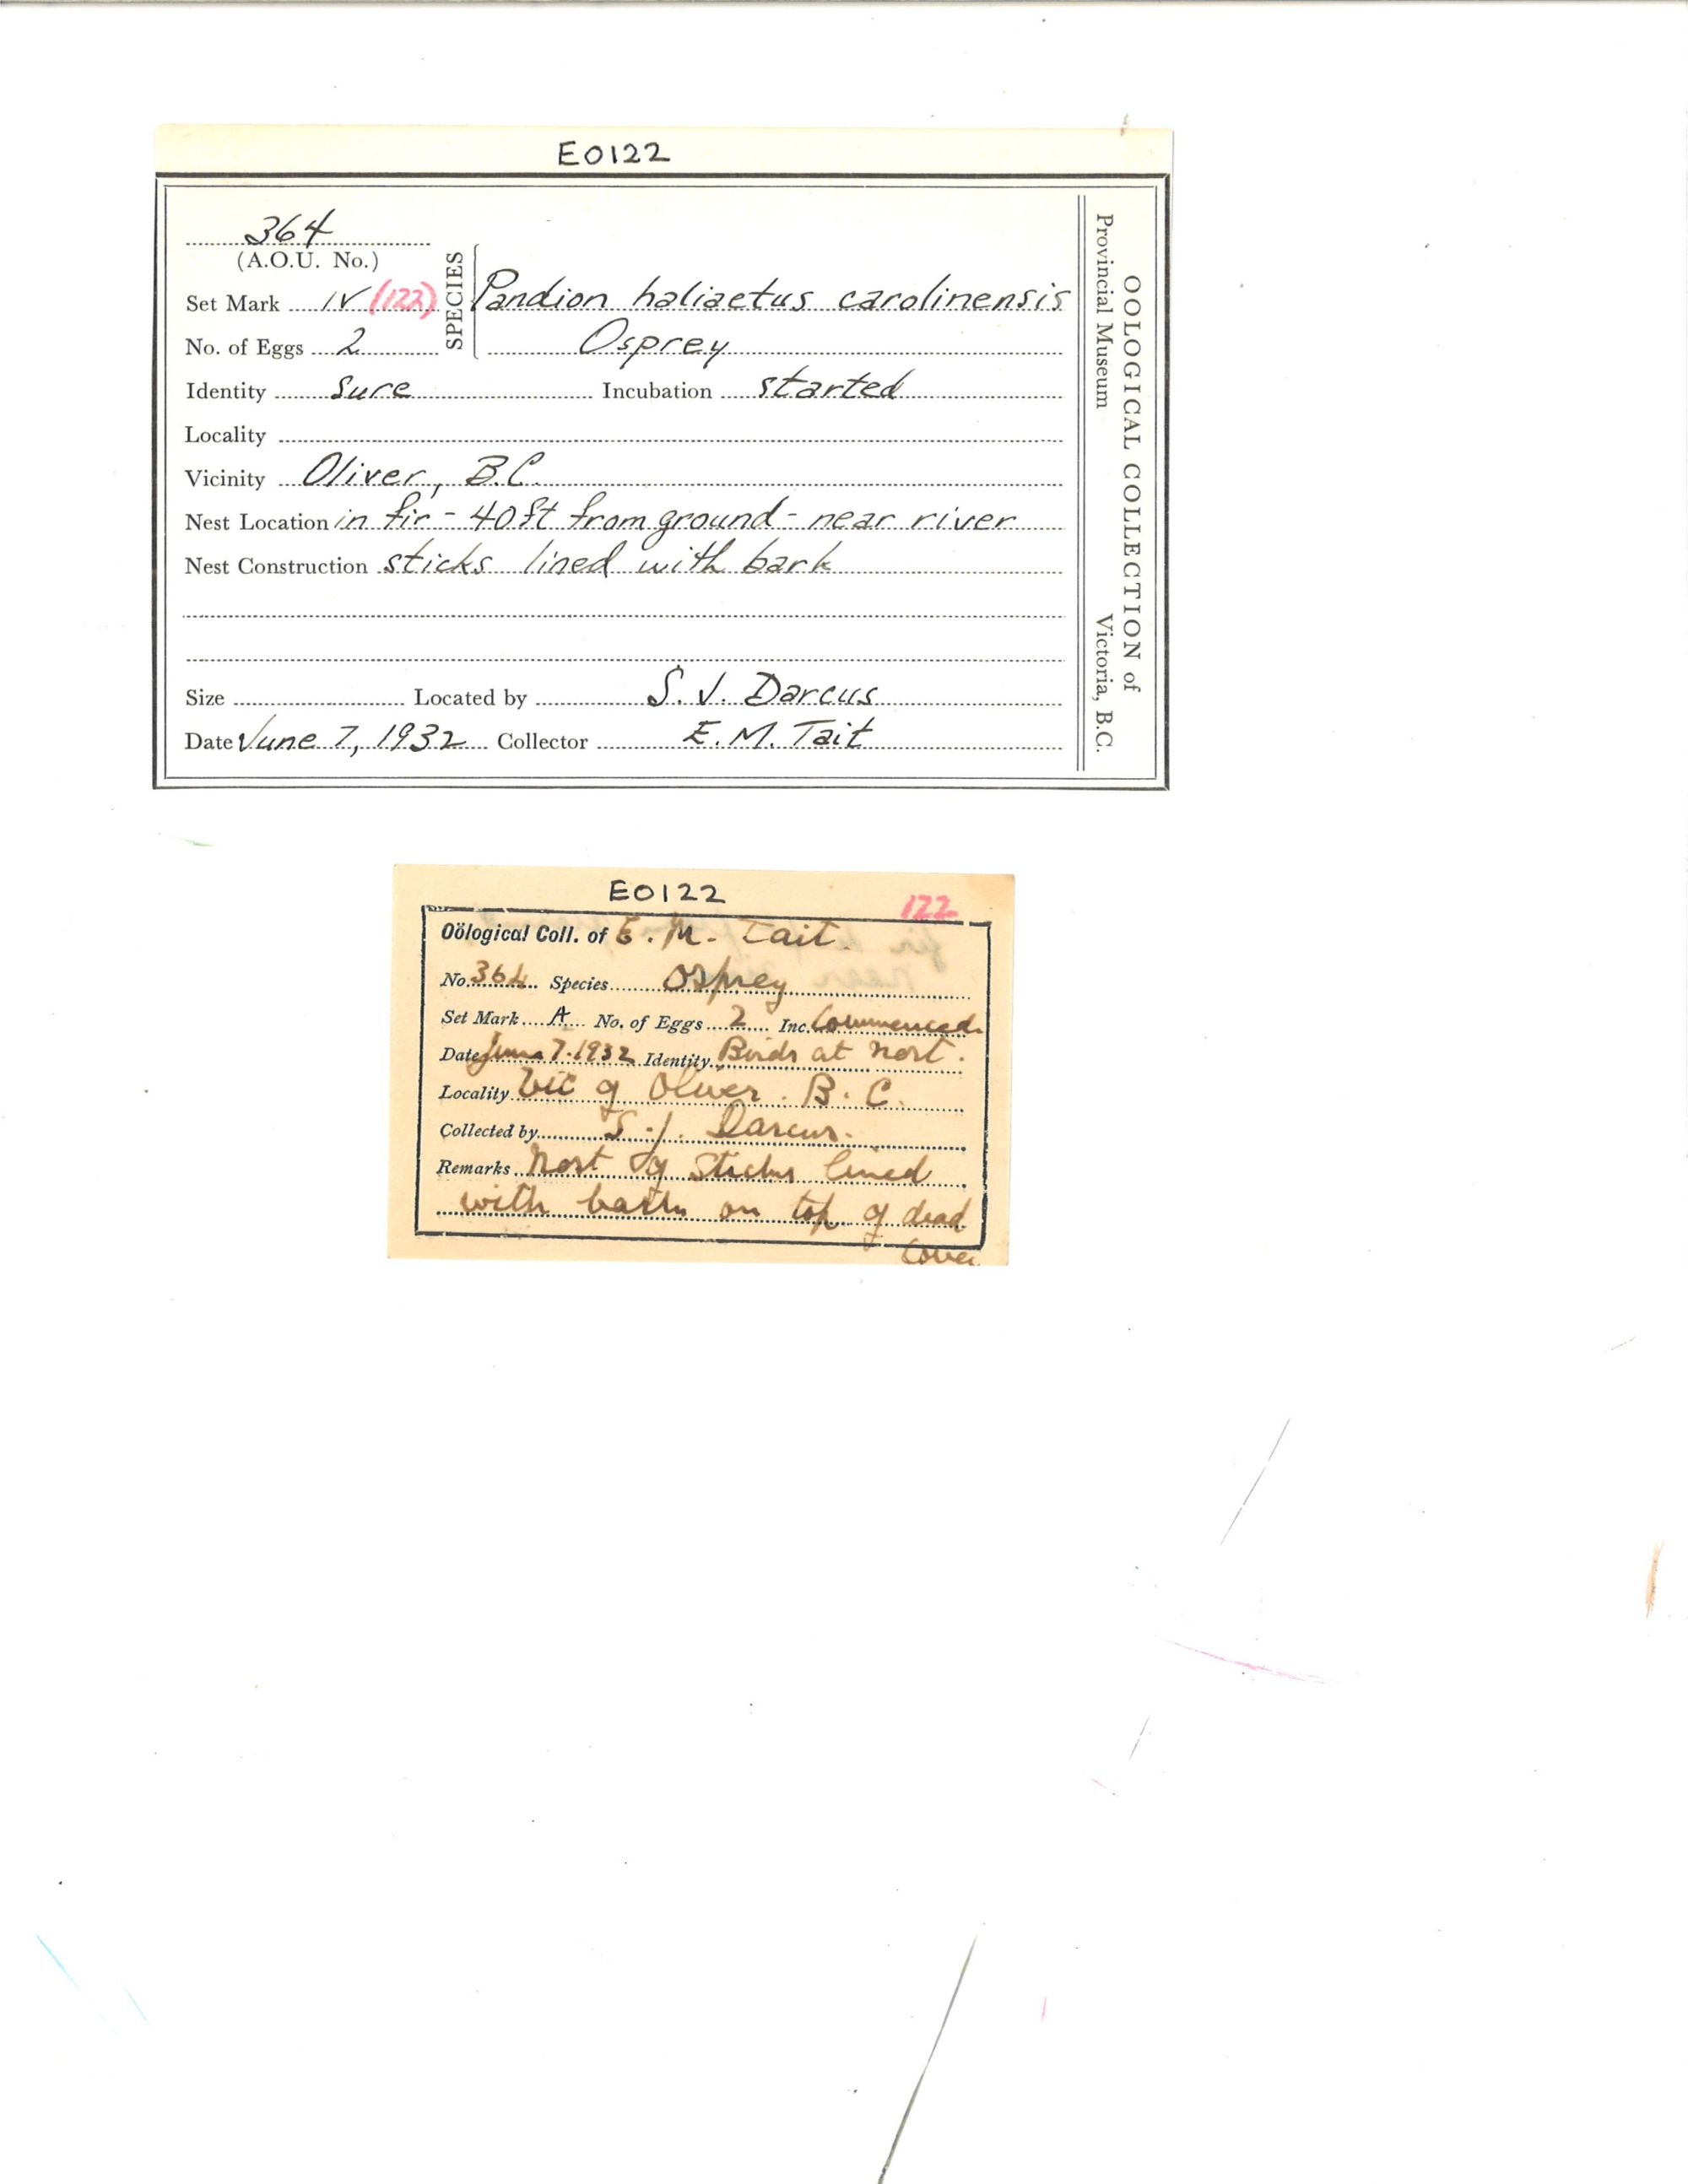 E0122
364
(A.O.U. No.)
Set Mark IV (122)
No. of Eggs 2
SPECIES
Pandion haliaetus carolinensis
Osprey
Identity Sure Incubation started
Locality
Vicinity Oliver, B.C.
Nest Location in fir - 40 ft from ground - near river
Nest Construction sticks lined with bark
Size Located by S. J. Darcus
Date June 7, 1932 Collector E. M. Tait
OOLOGICAL COLLECTION of
Provincial Museum Victoria, B.C.
E0122
122
Oölogical Coll. of E. M. Tait.
No. 364 Species Osprey
Set Mark A No. of Eggs 2 Inc. Commenced.
Date June 7. 1932 Identity Birds at nest.
Locality Vic of Oliver. B. C.
Collected by S. J. Darcus.
Remarks Nest of sticks lined
with bark on top of dead
(over